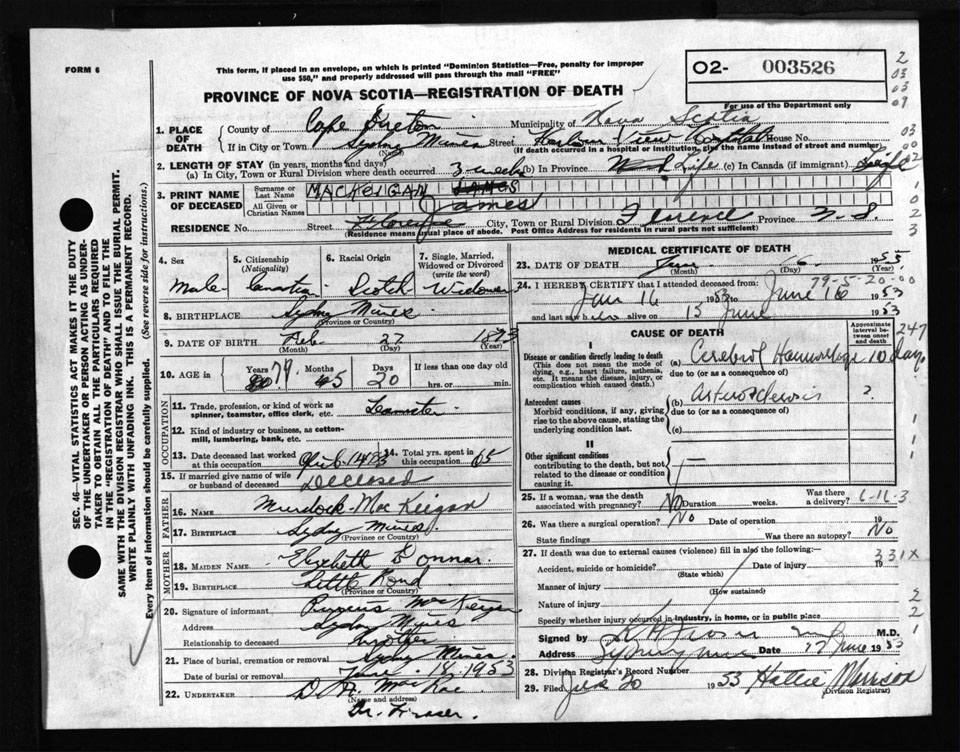 FORM 6
This form, if placed in an envelope, on which is printed "Dominion Statistics—Free, penalty for improper
use $50," and properly addressed will pass through the mail "FREE"
PROVINCE OF NOVA SCOTIA—REGISTRATION OF DEATH
O2- 003526
For use of the Department only
2
03
03
09
1. PLACE OF DEATH
County of Cape Breton Municipality of Nova Scotia
If in City or Town Sydney Mines Street Harbour View Hospital House No.
(Name)
(If death occurred in a hospital or institution, give the name instead of street and number)
2. LENGTH OF STAY (in years, months and days)
(a) In City, Town or Rural Division where death occurred 3 weeks (b) In Province Life (c) In Canada (if immigrant) Life
3. PRINT NAME OF DECEASED
Surname or Last Name MACKEIGAN JAMES
All Given or Christian Names James
RESIDENCE No. Street Florence City, Town or Rural Division Florence Province N. S.
(Residence means usual place of abode. Post Office Address for residents in rural parts not sufficient)
4. Sex Male
5. Citizenship (Nationality) Canadian
6. Racial Origin Scotch
7. Single, Married, Widowed or Divorced (write the word) Widower
8. BIRTHPLACE Sydney Mines
(Province or Country)
9. DATE OF BIRTH Feb. 27 1873
(Month) (Day) (Year)
10. AGE in Years 79 Months 5 Days 20 If less than one day old
hrs. or min.
OCCUPATION
11. Trade, profession, or kind of work as spinner, teamster, office clerk, etc. Teamster
12. Kind of industry or business, as cotton-mill, lumbering, bank, etc.
13. Date deceased last worked at this occupation
14. Total yrs. spent in this occupation 65
15. If married give name of wife or husband of deceased Deceased
FATHER
16. NAME Murdock MacKeigan
17. BIRTHPLACE Sydney Mines
(Province or Country)
MOTHER
18. MAIDEN NAME Elizabeth
19. BIRTHPLACE Little Pond
(Province or Country)
20. Signature of informant MacKeigan
Address Sydney Mines
Relationship to deceased brother
21. Place of burial, cremation or removal Sydney Mines
Date of burial or removal June 18, 1953
22. UNDERTAKER D. A. MacRae
(Name and address)
Dr. Fraser.
MEDICAL CERTIFICATE OF DEATH
23. DATE OF DEATH June 16 1953
(Month) (Day) (Year)
79-5-20-00
24. I HEREBY CERTIFY that I attended deceased from:
Jan 16 1953 to June 16 1953
and last saw h alive on 15 June 1953
CAUSE OF DEATH
Approximate interval between onset and death
247
I
Disease or condition directly leading to death
(This does not mean the mode of dying, e.g., heart failure, asthenia, etc. It means the disease, injury, or complication which caused death.)
(a) Cerebral Hemorrhage 10 days
due to (or as a consequence of)
Antecedent causes
Morbid conditions, if any, giving rise to the above cause, stating the underlying condition last.
(b) Arteriosclerosis ?
due to (or as a consequence of)
(c)
II
Other significant conditions
contributing to the death, but not related to the disease or condition causing it.
25. If a woman, was the death associated with pregnancy? No Duration weeks. Was there a delivery?
6-16-3
26. Was there a surgical operation? No Date of operation 19
State findings Was there an autopsy? No
27. If death was due to external causes (violence) fill in also the following:—
331X
Accident, suicide or homicide? Date of injury 19
(State which)
Manner of injury
(How sustained)
Nature of injury
Specify whether injury occurred in industry, in home, or in public place
Signed by M.D.
Address Sydney Mines Date 17 June 1953
28. Division Registrar's Record Number
29. Filed 20 1953 Hattie Morrison
(Division Registrar)
SEC. 46—VITAL STATISTICS ACT MAKES IT THE DUTY
OF THE UNDERTAKER OR PERSON ACTING AS UNDER-
TAKER TO OBTAIN ALL THE PARTICULARS REQUIRED
IN THE "REGISTRATION OF DEATH" AND TO FILE THE
SAME WITH THE DIVISION REGISTRAR WHO SHALL ISSUE THE BURIAL PERMIT.
WRITE PLAINLY WITH UNFADING INK. THIS IS A PERMANENT RECORD.
Every item of information should be carefully supplied. (See reverse side for instructions.)